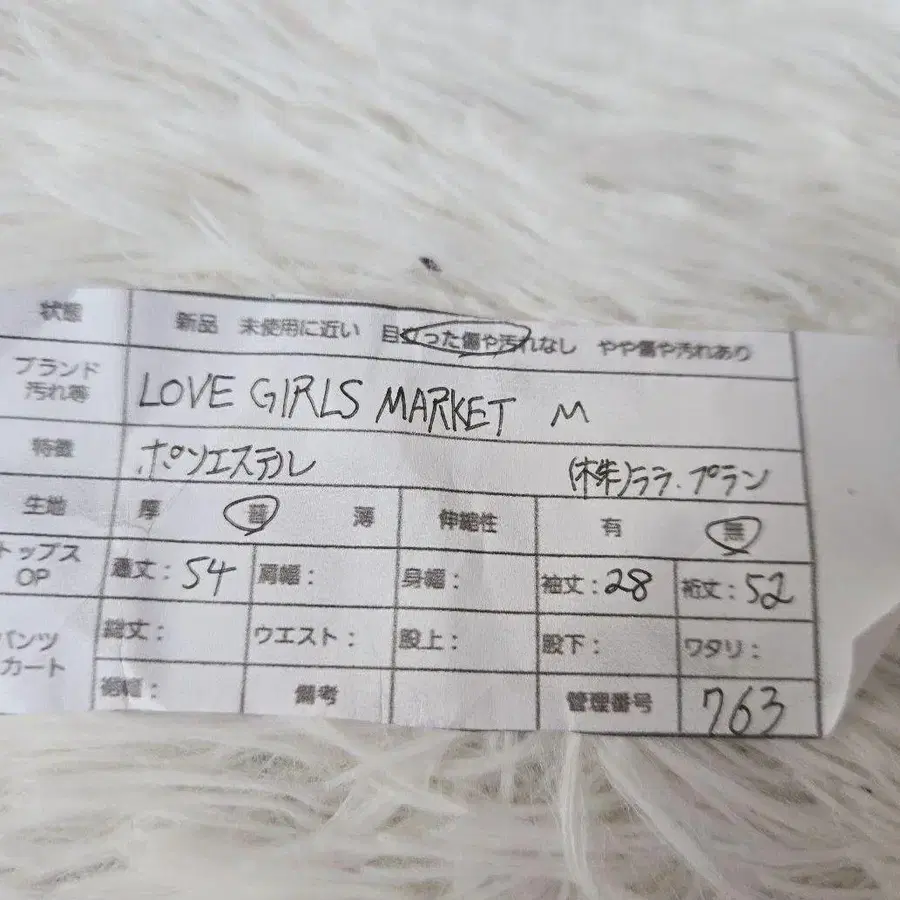 状態 新品 未使用に近い 目立った傷や汚れなし やや傷や汚れあり
ブランド
汚れ等 LOVE GIRLS MARKET M
特徴 ポリエステル (株)ララ.プラン
生地 厚 普 薄 伸縮性 有 無
トップス
OP 着丈: 54 肩幅: 身幅: 袖丈: 28 裄丈: 52
パンツ
カート 総丈: ウエスト: 股上: 股下: ワタリ:
裾幅: 備考 管理番号 763